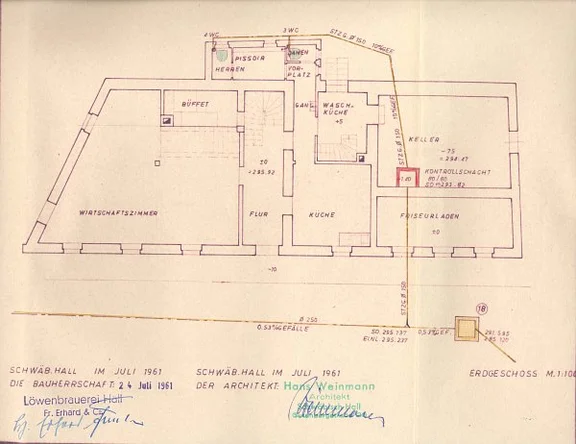 2 WC
3 WC
STZG. Ø 150
10% GEF.
PISSOIR
HERREN
DAMEN
VOR-
PLATZ
BÜFFET
GANG
WASCH-
KÜCHE
+5
10% GEF.
STZG. Ø 150
KELLER
-75
=294.47
±0
=295.92
KONTROLLSCHACHT
80/80
WIRTSCHAFTSZIMMER
FLUR
KÜCHE
FRISEURLADEN
±0
-10
STZG. Ø 150
18
Ø 250
0.53% GEFÄLLE
SD. 295.137
EINL. 295.237
0.53% GEF.
SCHWÄB. HALL IM JULI 1961
SCHWÄB. HALL IM JULI 1961
ERDGESCHOSS M. 1:100
DIE BAUHERRSCHAFT: 24 Juli 1961
DER ARCHITEKT: Hans Weinmann
Architekt
Löwenbrauerei Hall
Fr. Erhard & Co.